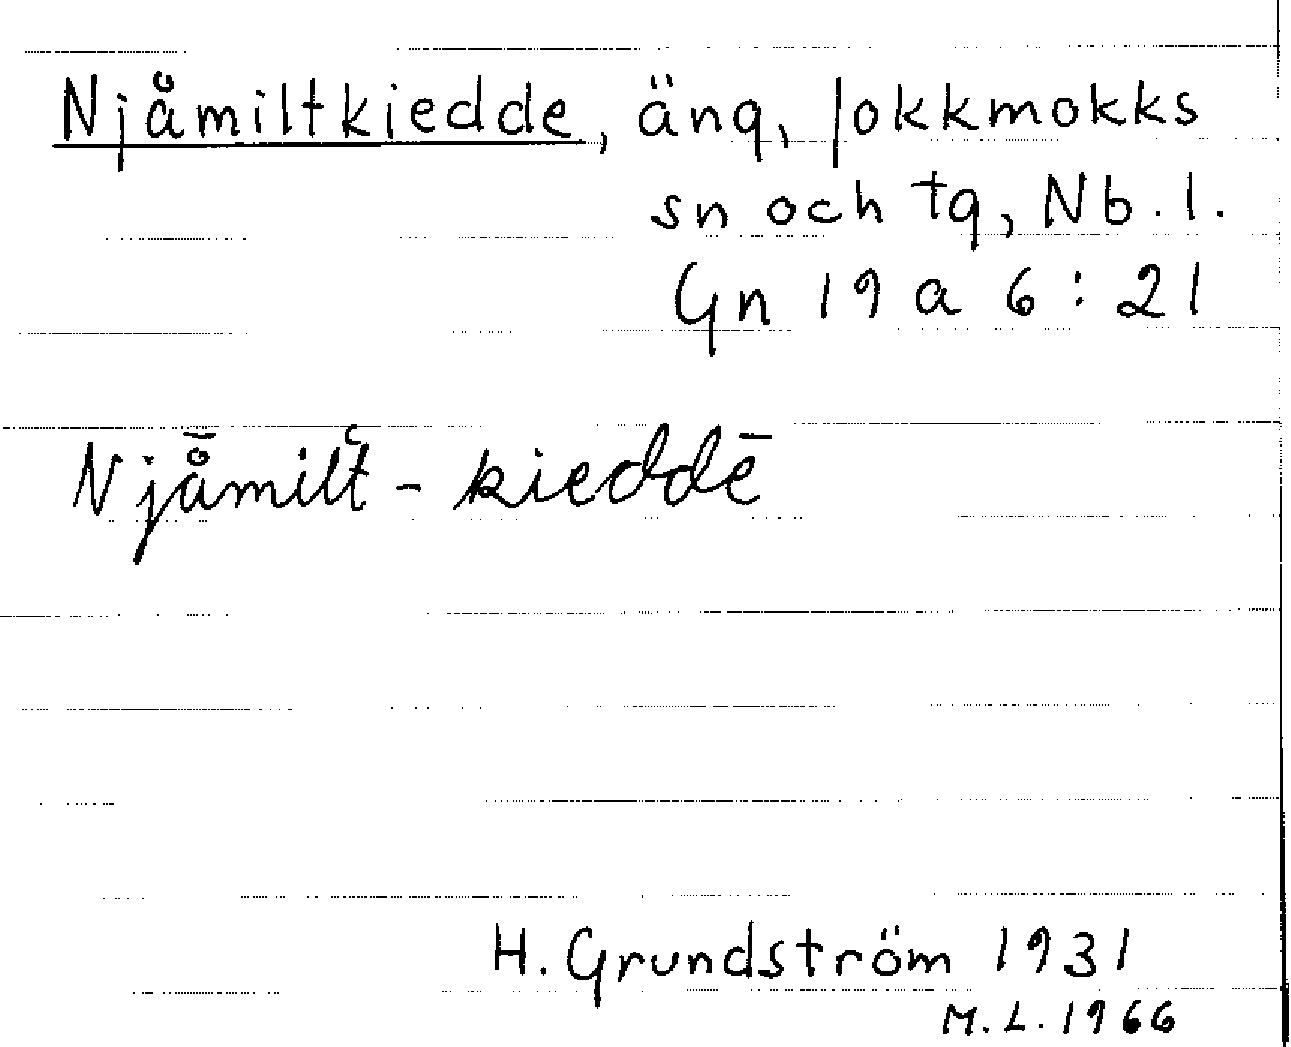 Njåmiltkiedde, äng, Jokkmokks
sn och tg, Nb.l.
Gn 19 a 6:21
Njå̄milt̔ - kieddē
H. Grundström 1931
M.L. 1966